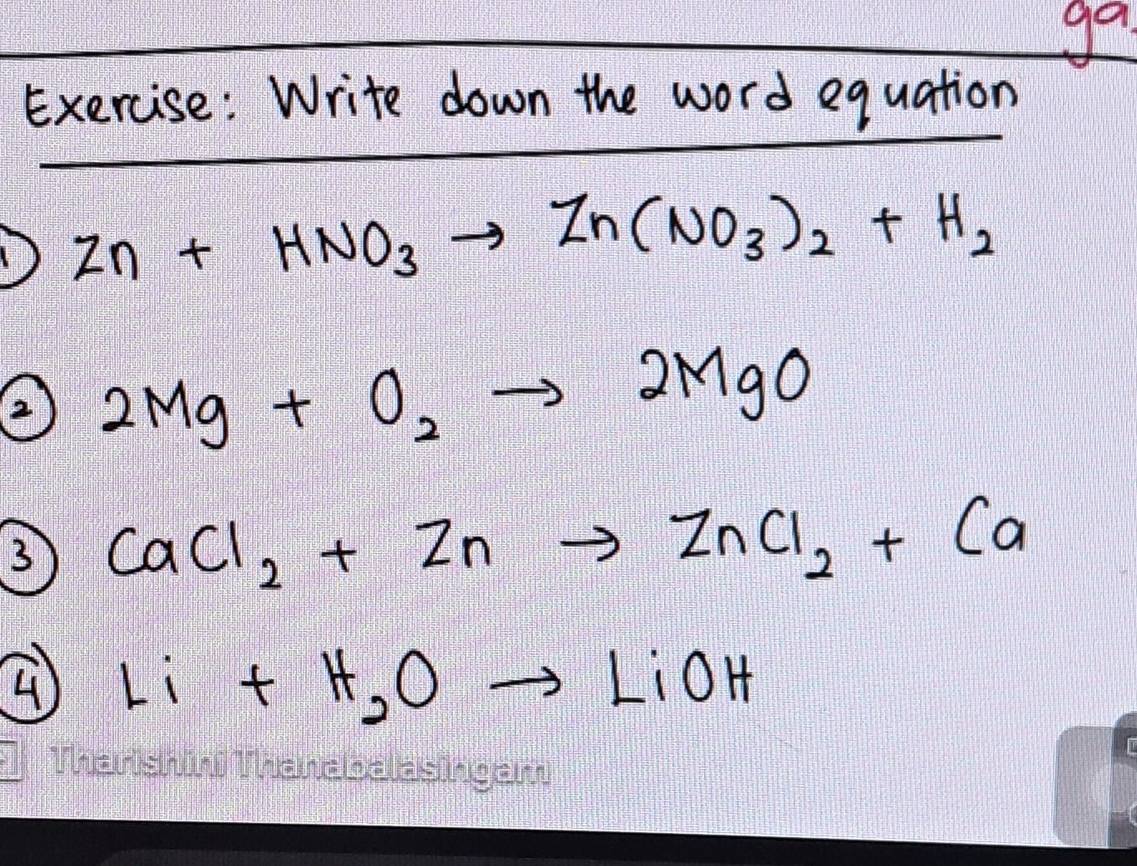 ga
Exercise: Write down the word equation
① Zn + HNO₃ → Zn(NO₃)₂ + H₂
② 2Mg + O₂ → 2MgO
③ CaCl₂ + Zn → ZnCl₂ + Ca
④ Li + H₂O → LiOH
Tharishini Thanabalasingam